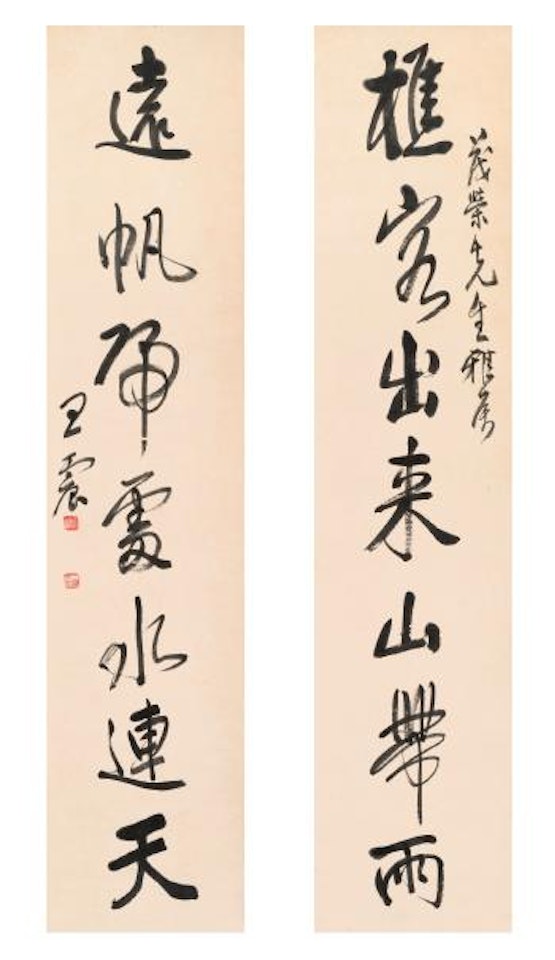 樵客出来山帶雨
茂榮先生雅屬
遠帆歸處水連天
王震